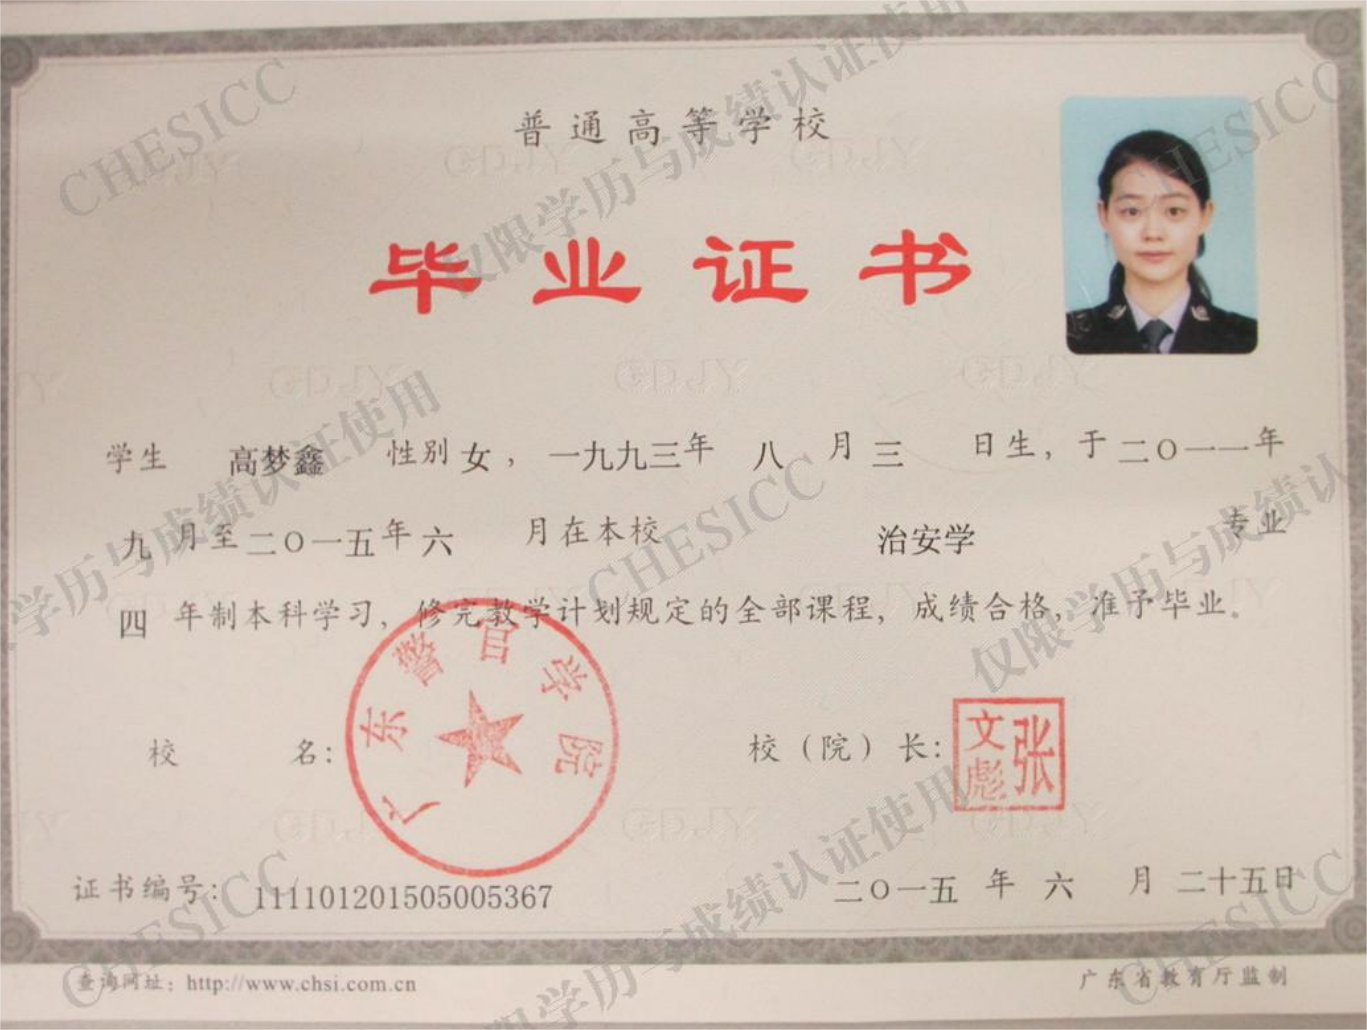 普通高等学校
毕业证书
学生 高梦鑫 性别 女，一九九三年 八 月 三 日生，于二〇一一年
九 月至二〇一五年六 月在本校 治安学 专业
四 年制本科学习，修完教学计划规定的全部课程，成绩合格，准予毕业。
校 名：
广东警官学院
校（院）长：
张文彪
证书编号：111101201505005367
二〇一五 年 六 月 二十五日
查询网址：http://www.chsi.com.cn
广东省教育厅监制
CHESICC
仅限学历与成绩认证使用
CHESICC
仅限学历与成绩认证使用
CHESICC
仅限学历与成绩认证使用
CHESICC
仅限学历与成绩认证使用
CHESICC
GDJY
GDJY
GDJY
GDJY
GDJY
GDJY
GDJY
GDJY
GDJY